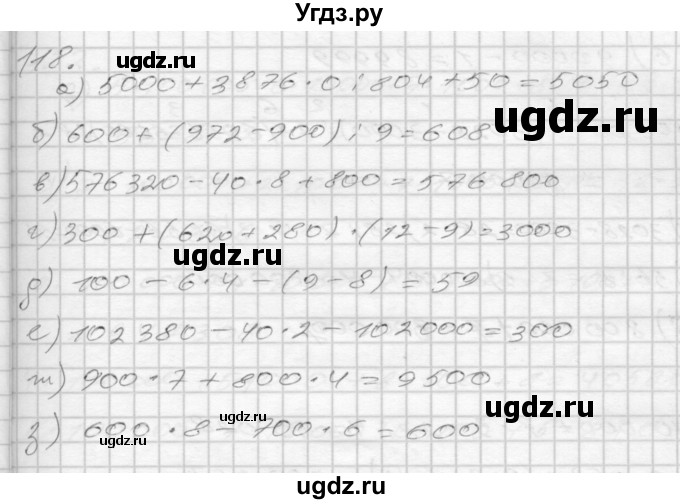 Угдз.ру
118.
а) 5000 + 3876 · 0 : 804 + 50 = 5050
ugdz.ru
ugdz.ru
б) 600 + (972 - 900) : 9 = 608
ugdz.ru
в) 576320 - 40 · 8 + 800 = 576 800
г) 300 + (620 + 280) · (12 - 9) = 3000
ugdz.ru
д) 100 - 6 · 4 - (9 - 8) = 59
е) 102 380 - 40 · 2 - 102000 = 300
ж) 900 · 7 + 800 · 4 = 9500
ugdz.ru
ugdz.ru
з) 600 · 8 - 700 · 6 = 600
ugdz.ru
ugdz.ru